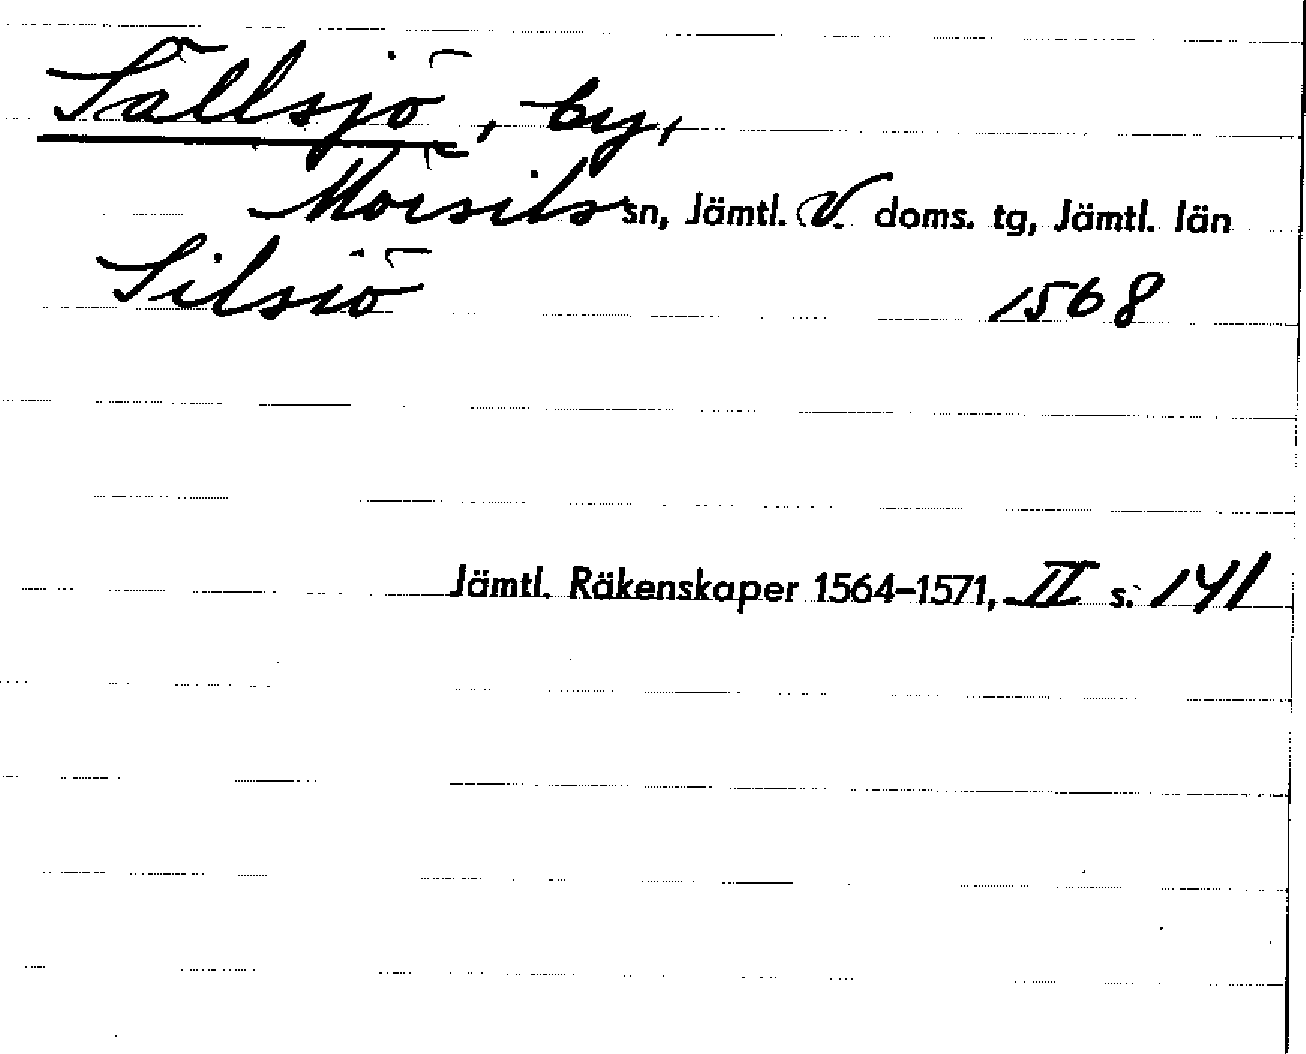 Sällsjö, by,
Mörsils sn, Jämtl. V. doms. tg, Jämtl. län
Silsiö 1568
Jämtl. Räkenskaper 1564–1571, II s. 141